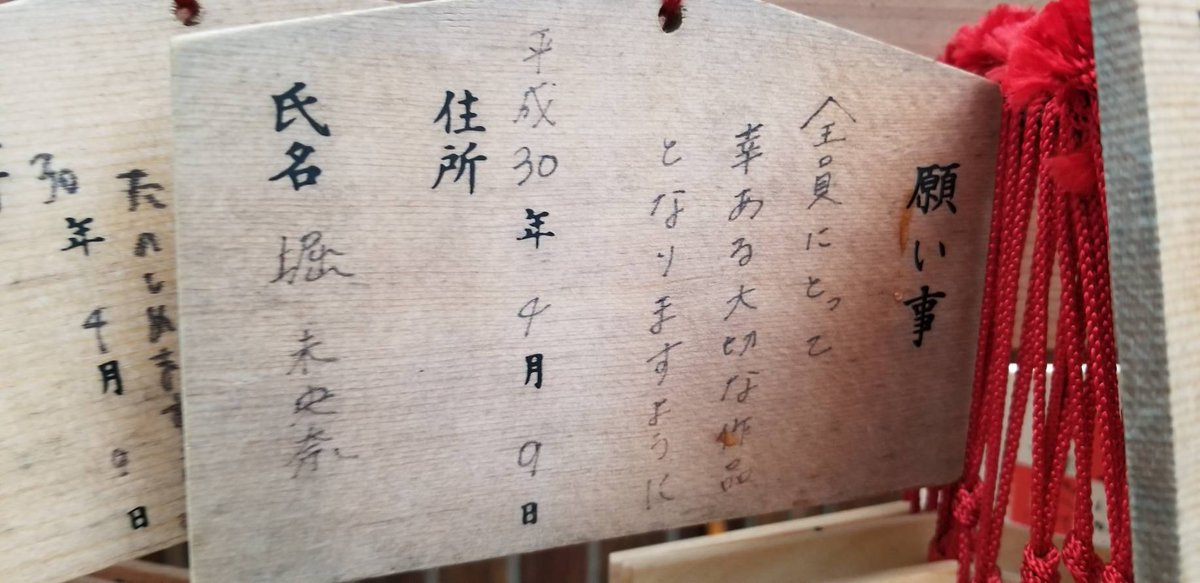 願い事
全員にとって
幸ある大切な作品
となりますように
平成30年4月9日
住所
氏名 堀 未央奈
30年4月9日